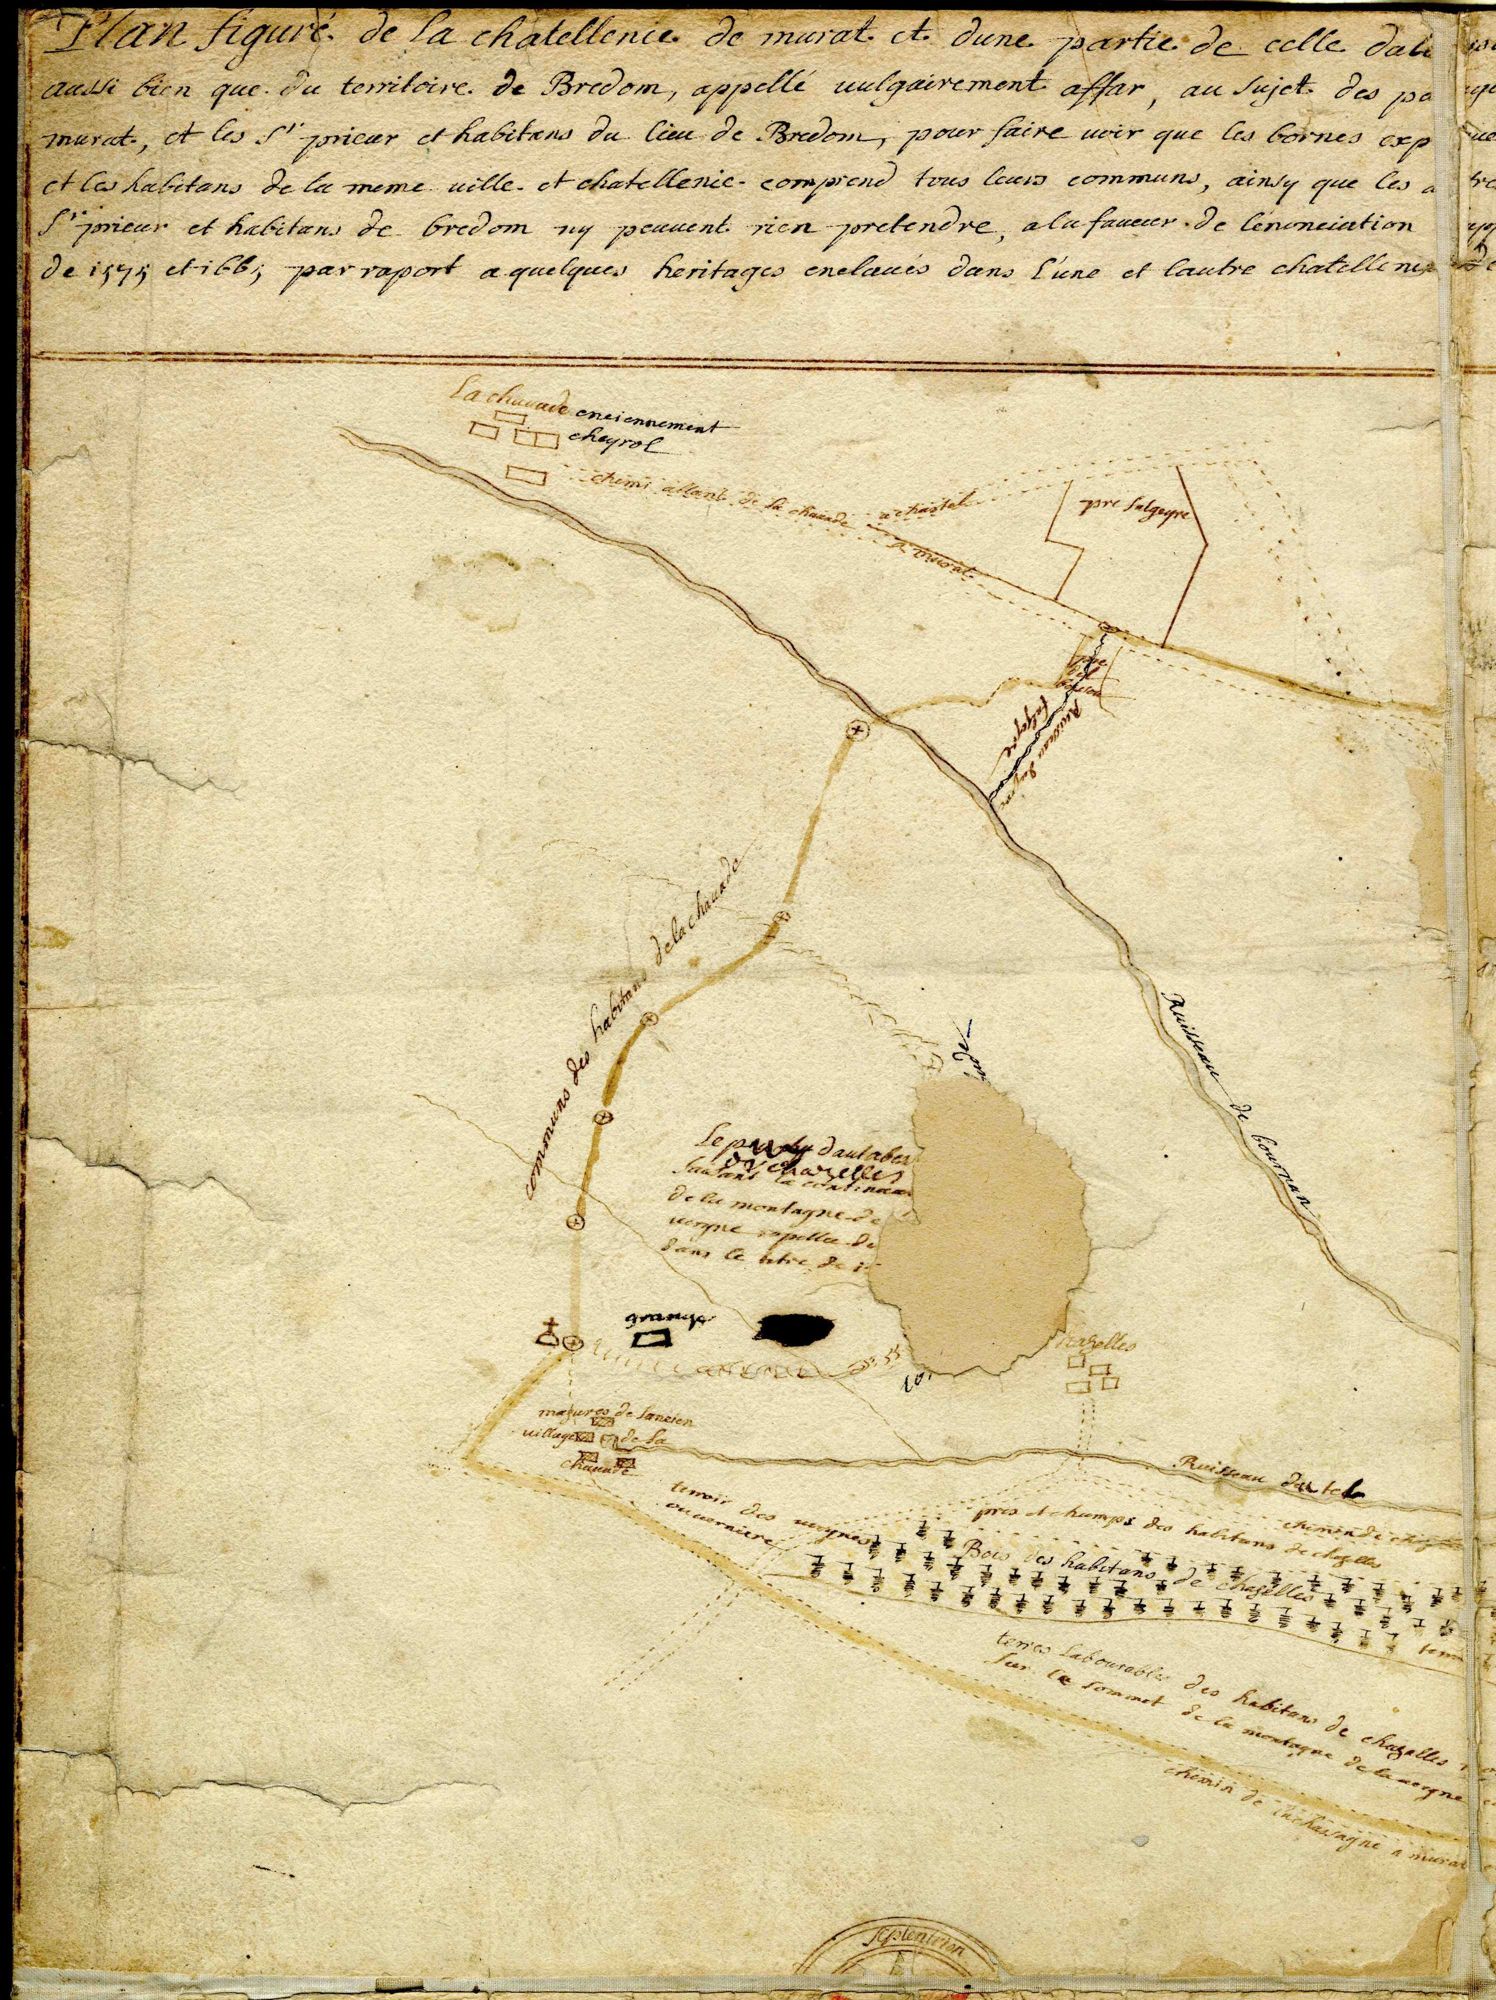 Plan figuré de la chatellenie de murat et dune partie de celle dalb
aussi bien que du territoire de Bredom, appellé uulgairement affar, au sujet des pa
murat, et les Sr prieur et habitans du lieu de Bredom, pour faire uoir que les bornes exp
et les habitans de la meme uille et chatellenie comprend tous leurs communs, ainsy que les a
Sr prieur et habitans de bredom ny peuuent rien pretendre, a la faueur de lénonciation
de 1575 et 1665 par raport a quelques heritages enclaués dans l'une et lautre chatellenie
La chauade enciennement
cheyrol
chemi allant de la chauade a chastel
a murat
pre Salgeyre
pre
del
Ruisseau
communs des habitans de la chauade
Ruisseau de bournan
Le puy dautabes
de chazelles
faisant la continua
de la montagne de
uergne apellee de
dans le titre de 1
grange
chazelles
mazures de lancien
uillage de la
chauade
Ruisseau del tel
terroir des uergnes
ou uerniere
chemin de chaz
pres et champs des habitans de chazelles
Bois des habitans de chazelles
terres labourables des habitans de chazelles
sur le sommet de la montagne de la uergne
chemin de lachassagne a murat
septentrion